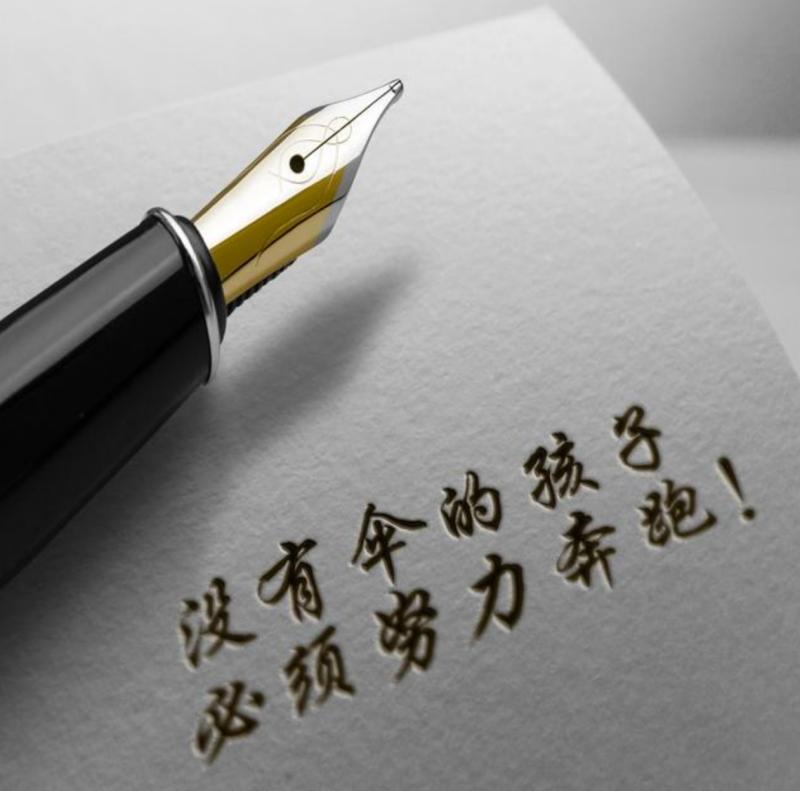 没有伞的孩子
必须努力奔跑！